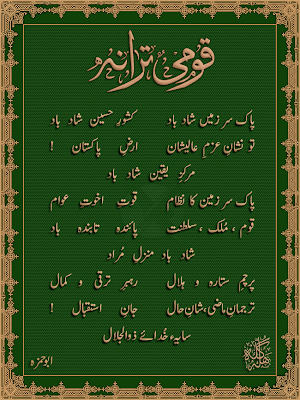 قومی ترانہ
پاک سرزمین شاد باد کشورِ حسین شاد باد
تو نشانِ عزمِ عالیشان ارضِ پاکستان !
مرکزِ یقین شاد باد
پاک سرزمین کا نظام قوتِ اخوتِ عوام
قوم ، مُلک ، سلطنت پائندہ تابندہ باد
شاد باد منزلِ مُراد
پرچمِ ستارہ و ہلال رہبرِ ترقی و کمال
ترجمانِ ماضی، شانِ حال جانِ استقبال !
سایہء خُدائے ذوالجلال
ابوحمزہ